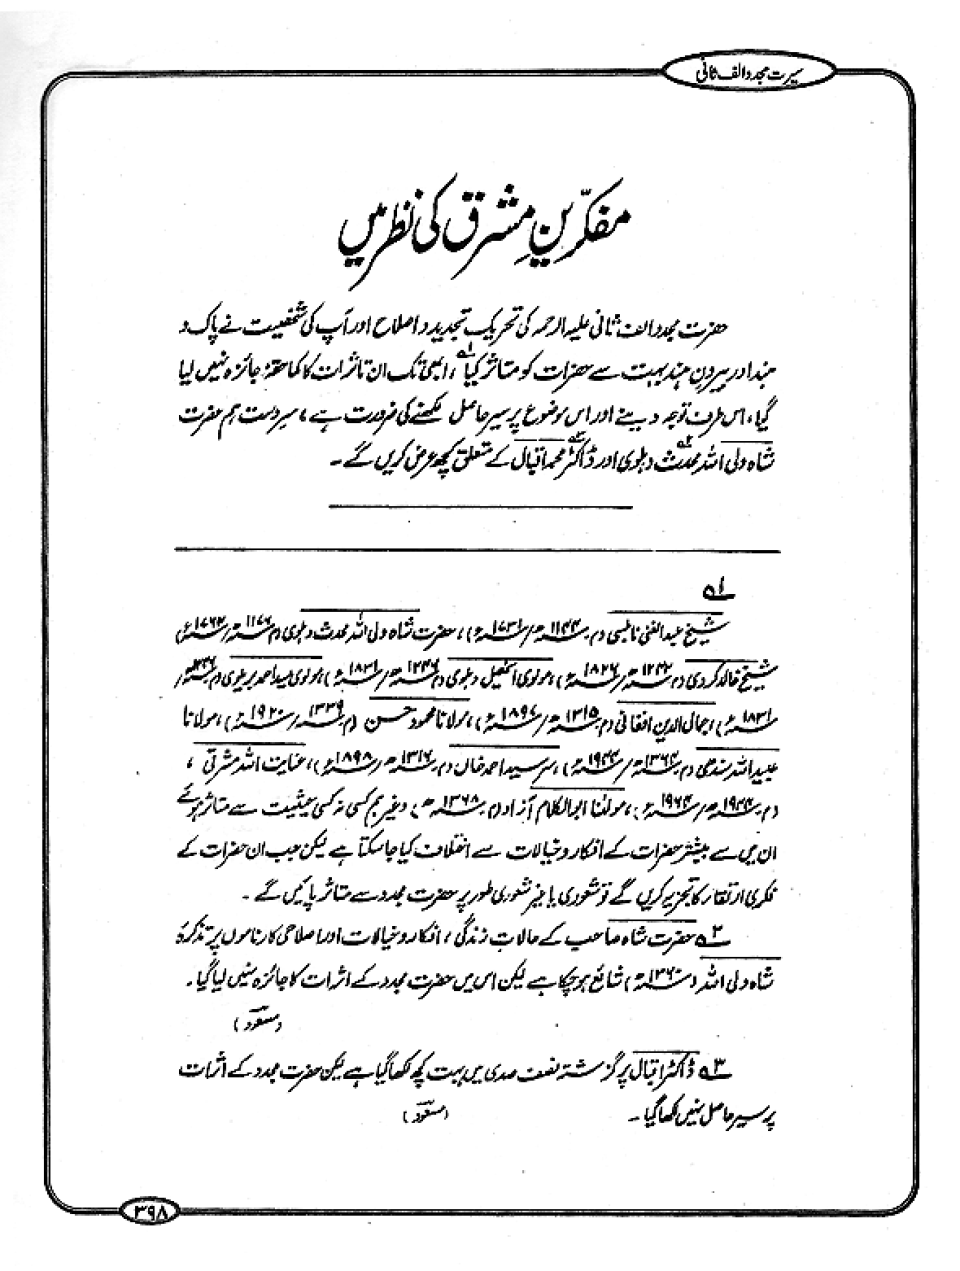 سیرت مجدد الف ثانی
مفکّرینِ مشرق کی نظر میں
حضرت مجدد الف ثانی علیہ الرحمہ کی تحریک تجدید و اصلاح اور آپ کی شخصیت نے پاک و
ہند اور بیرونِ ہند بہت سے حضرات کو متاثر کیا ۱ے، ابھی تک ان تاثرات کا کما حقہٗ جائزہ نہیں لیا
گیا، اس طرف توجہ دینے اور اس موضوع پر سیر حاصل لکھنے کی ضرورت ہے، سرِ دست ہم حضرت
شاہ ولی اللہ محدث ۲ے دہلوی اور ڈاکٹر محمد اقبال ۳ے کے متعلق کچھ عرض کریں گے۔
۱ے
شیخ عبدالغنی نابلسی (م ۱۱۴۴ھ/۱۷۳۱ء)، حضرت شاہ ولی اللہ محدث دہلوی (م ۱۱۷۶ھ/۱۷۶۲ء)
شیخ خالد کردی (م ۱۲۴۲ھ/۱۸۲۶ء)، مولوی اسمٰعیل دہلوی (م ۱۲۴۶ھ/۱۸۳۱ء)، مولوی سید احمد بریلوی (م ۱۲۴۶ھ/
۱۸۳۱ء)، جمال الدین افغانی (م ۱۳۱۵ھ/۱۸۹۷ء)، مولانا محمود حسن (م ۱۳۳۹ھ/۱۹۲۰ء)، مولانا
عبید اللہ سندھی (م ۱۳۶۳ھ/۱۹۴۴ء)، سر سید احمد خان (م ۱۳۱۶ھ/۱۸۹۸ء)، عنایت اللہ مشرقی،
(م ۱۹۴۴ھ/۱۹۶۴ء)، مولٰنا ابوالکلام آزاد (م ۱۳۶۸ھ) وغیرہم کسی نہ کسی حیثیت سے متاثر ہوئے
ان میں سے بیشتر حضرات کے افکار و خیالات سے اختلاف کیا جا سکتا ہے لیکن جب ان حضرات کے
فکری ارتقار کا تجزیہ کریں گے تو شعوری یا غیر شعوری طور پر حضرت مجدد سے متاثر پائیں گے۔
۲ے حضرت شاہ صاحب کے حالاتِ زندگی، افکار و خیالات اور اصلاحی کارناموں پر تذکرہ
شاہ ولی اللہ (۱۳۶۰ھ) شائع ہو چکا ہے لیکن اس میں حضرت مجدد کے اثرات کا جائزہ نہیں لیا گیا۔
(مسعود)
۳ے ڈاکٹر اقبال پر گزشتہ نصف صدی میں بہت کچھ لکھا گیا ہے لیکن حضرت مجدد کے اثرات
پر سیر حاصل نہیں لکھا گیا۔ (مسعود)
۳۹۸